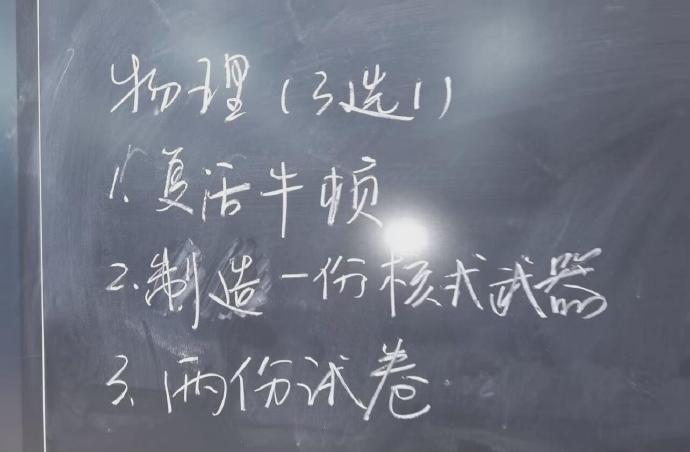 物理(3选1)
1.复活牛顿
2.制造一份核式武器
3.两份试卷.